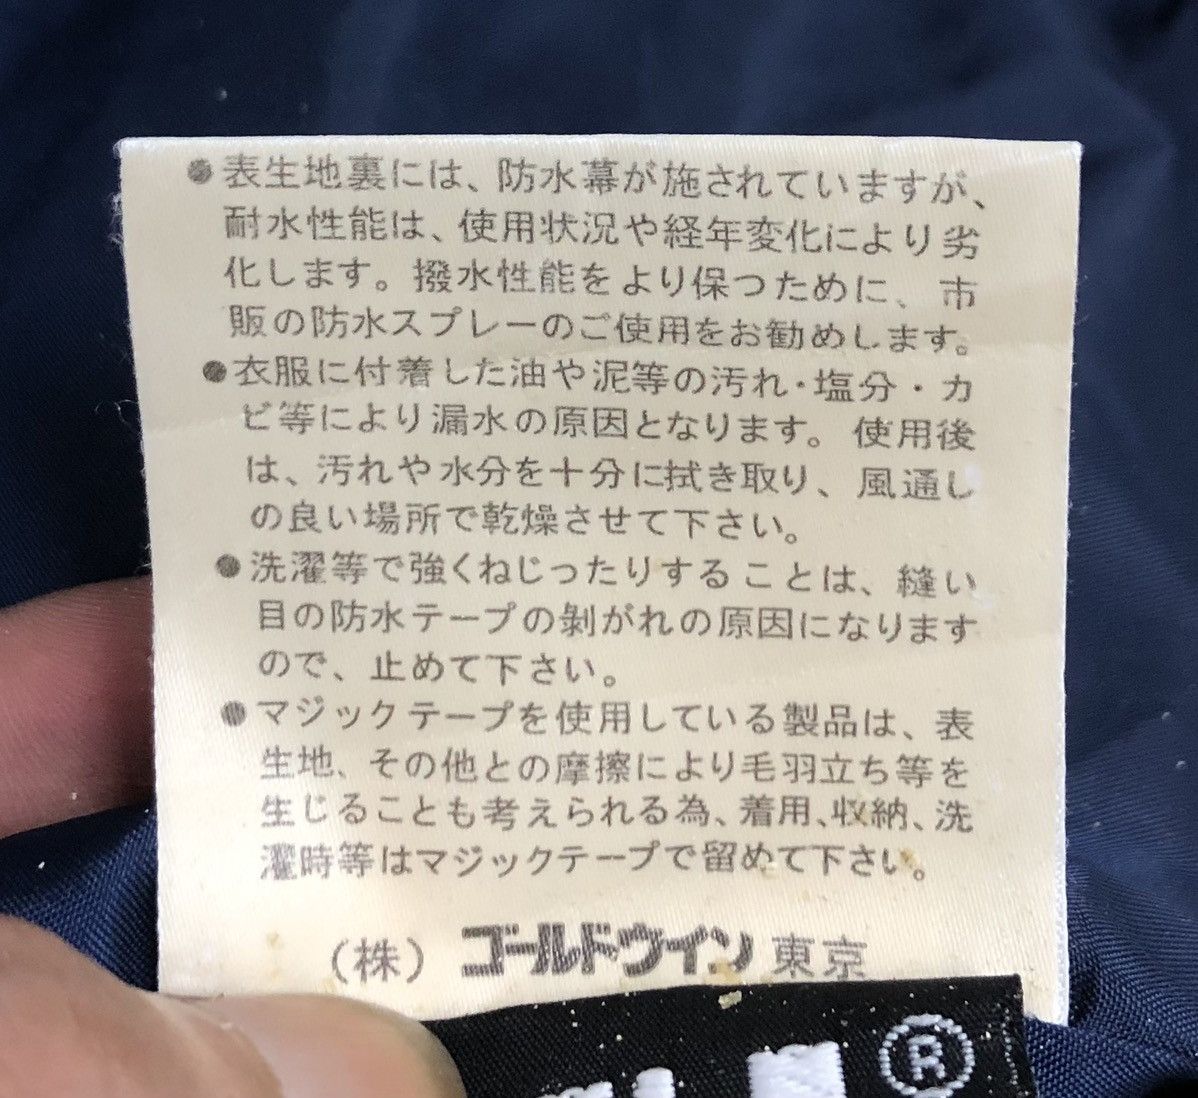 ●表生地裏には、防水幕が施されていますが、
耐水性能は、使用状況や経年変化により劣
化します。撥水性能をより保つために、市
販の防水スプレーのご使用をお勧めします。
●衣服に付着した油や泥等の汚れ・塩分・カ
ビ等により漏水の原因となります。使用後
は、汚れや水分を十分に拭き取り、風通し
の良い場所で乾燥させて下さい。
●洗濯等で強くねじったりすることは、縫い
目の防水テープの剥がれの原因になります
ので、止めて下さい。
●マジックテープを使用している製品は、表
生地、その他との摩擦により毛羽立ち等を
生じることも考えられる為、着用、収納、洗
濯時等はマジックテープで留めて下さい。
(株) ゴールドウイン 東京
®